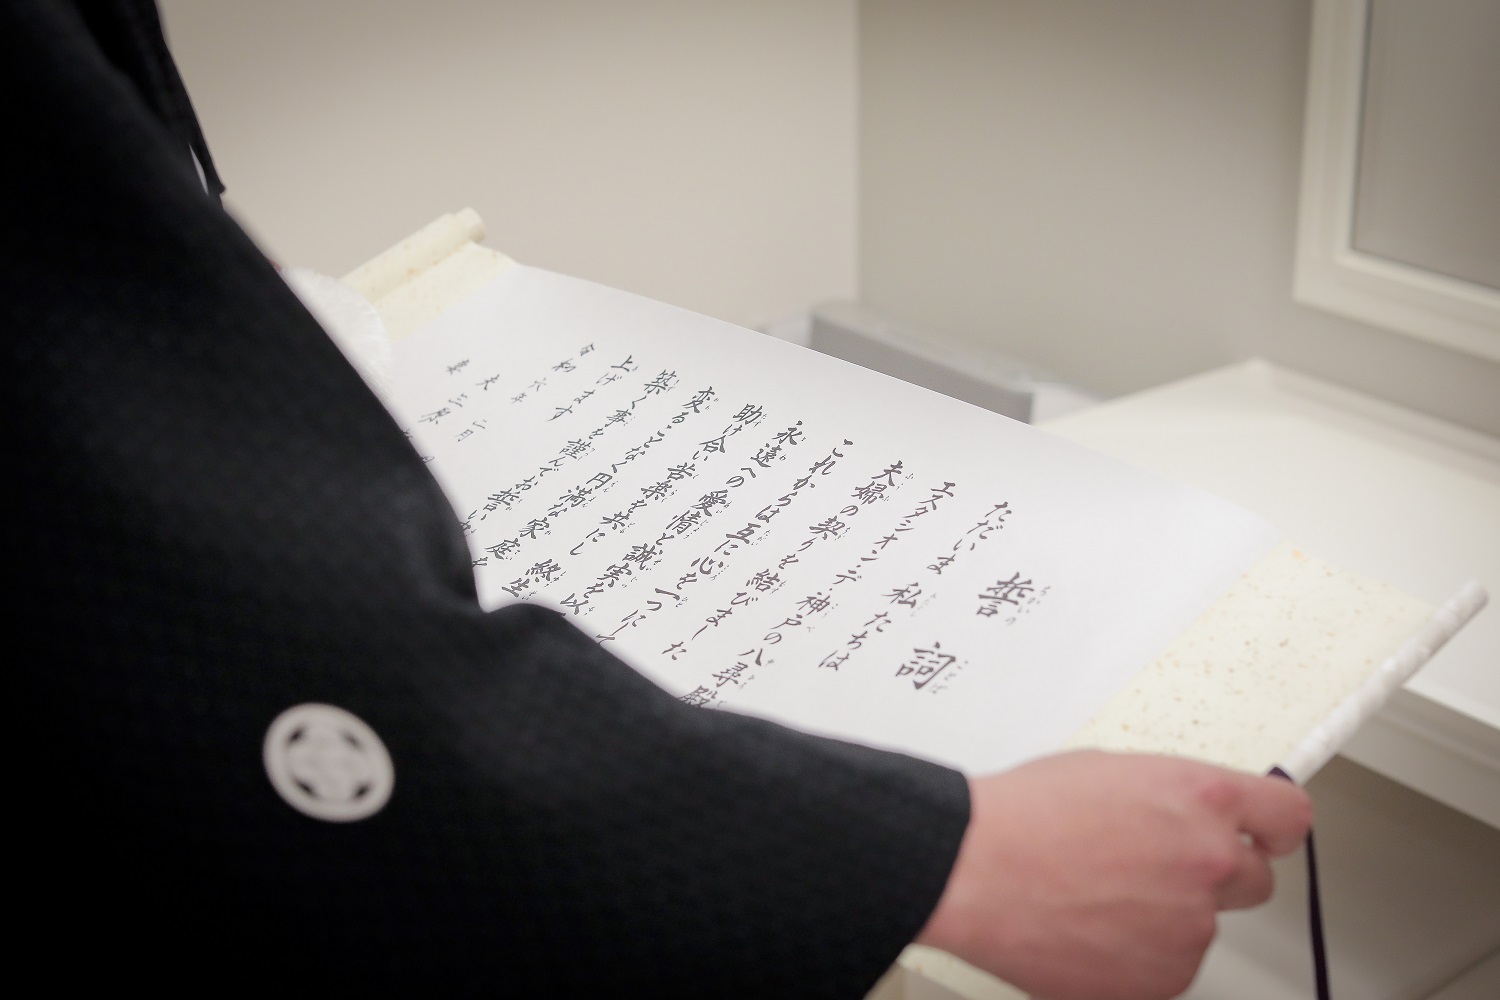 誓詞
ちかいの ことば
ただいま 私たちは
エスタシオン・デ・神戸の八尋殿
夫婦の契りを結びました
これからは互に心を一つにして
永遠への愛情と誠実を以
助け合い苦楽を共にし 終生
変ることなく円満な家庭を
築く事を謹んでお誓い
上げます
令和六年二月
夫 三原
妻